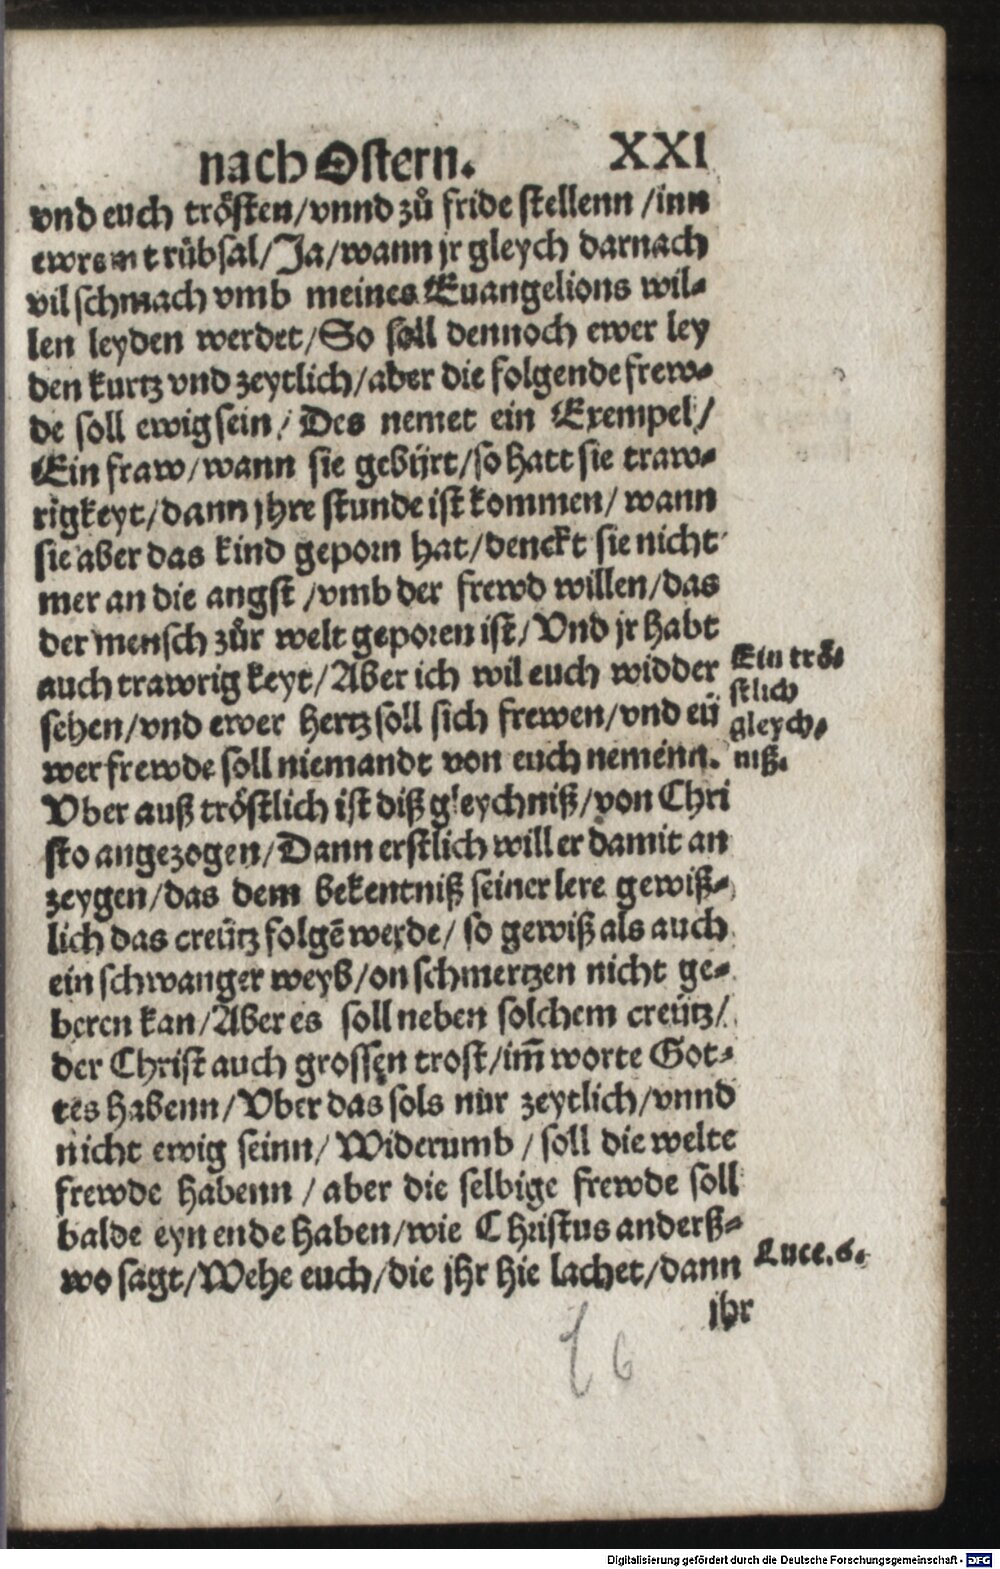 nach Ostern. XXI
vnd euch trösten/vnnd zů fride stellenn/inn
ewrem trübsal/Ja/wann jr gleych darnach
vil schmach vmb meines Euangelions wil-
len leyden werdet/So soll dennoch ewer ley
den kurtz vnd zeytlich/aber die folgende frew-
de soll ewig sein/Des nemet ein Exempel/
Ein fraw/wann sie gebijrt/so hatt sie traw-
rigkeyt/dann jhre stunde ist kommen/wann
sie aber das kind geporn hat/denckt sie nicht
mer an die angst/vmb der frewd willen/das
der mensch zůr welt geporen ist/Vnd jr habt
auch trawrigkeyt/Aber ich wil euch widder
sehen/vnd ewer hertz soll sich frewen/vnd eü
wer frewde soll niemandt von euch nemenn.
Ein trö-
stlich
gleych-
niß.
Vber auß tröstlich ist diß gleychniß/von Chri
sto angezogen/Dann erstlich will er damit an
zeygen/das dem bekentniß seiner lere gewiß-
lich das creütz folgē werde/so gewiß als auch
ein schwanger weyb/on schmertzen nicht ge-
beren kan/Aber es soll neben solchem creütz/
der Christ auch grossen trost/im̄ worte Got-
tes habenn/Vber das sols nur zeytlich/vnnd
nicht ewig seinn/Widerumb/soll die welte
frewde habenn/aber die selbige frewde soll
balde eyn ende haben/wie Christus anderß-
wo sagt/Wehe euch/die jhr hie lachet/dann
Luce.6.
jhr
16
Digitalisierung gefördert durch die Deutsche Forschungsgemeinschaft - DFG